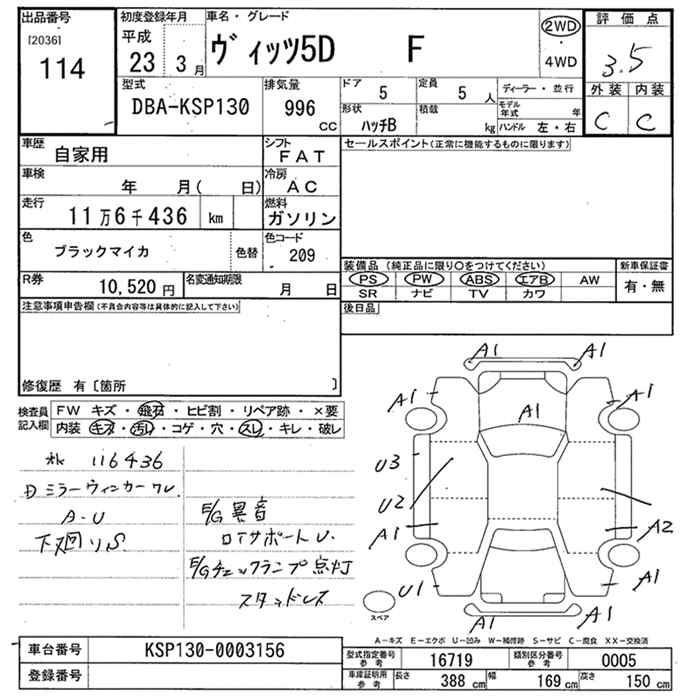 出品番号
[2036]
114
初度登録年月
平成
23 3月
車名・グレード
ヴィッツ5D F
2WD
・
4WD
評価点
3.5
外装 内装
C C
型式
DBA-KSP130
排気量
996
CC
ドア 5
定員 5 人
ディーラー・並行
形状 ハッチB
積載 kg
モデル年式 年
ハンドル 左・右
車歴
自家用
シフト
FAT
車検
年 月( 日)
冷房
AC
走行
11万6千436 km
燃料
ガソリン
色
ブラックマイカ
色替
色コード
209
R券
10,520円
名変通知期限
月 日
セールスポイント(正常に機能するものに限ります)
装備品(純正品に限り〇をつけてください)
新車保証書
PS PW ABS エアB AW
SR ナビ TV カワ
有・無
後日品
注意事項申告欄(不具合内容等は具体的に記入して下さい)
修復歴 有〔箇所 〕
検査員
記入欄
FW キズ・飛石・ヒビ割・リペア跡・×要
内装 キズ・汚れ・コゲ・穴・スレ・キレ・破レ
116436
ミラーウィンカーワレ
A-U
下廻りS.
E/G異音
ロアサポートU.
E/Gチェックランプ点灯
スタッドレス
A1 A1
A1 A1
A1
U3
U2
A1 A2
U1 A1
A1 A1
スペア
A-キズ E-エクボ U-凹み W-補修跡 S-サビ C-腐食 XX-交換済
車台番号
KSP130-0003156
登録番号
型式指定番号
参考
16719
類別区分番号
参考
0005
車庫証明用
参考
長さ 388 cm
幅 169 cm
高さ 150 cm